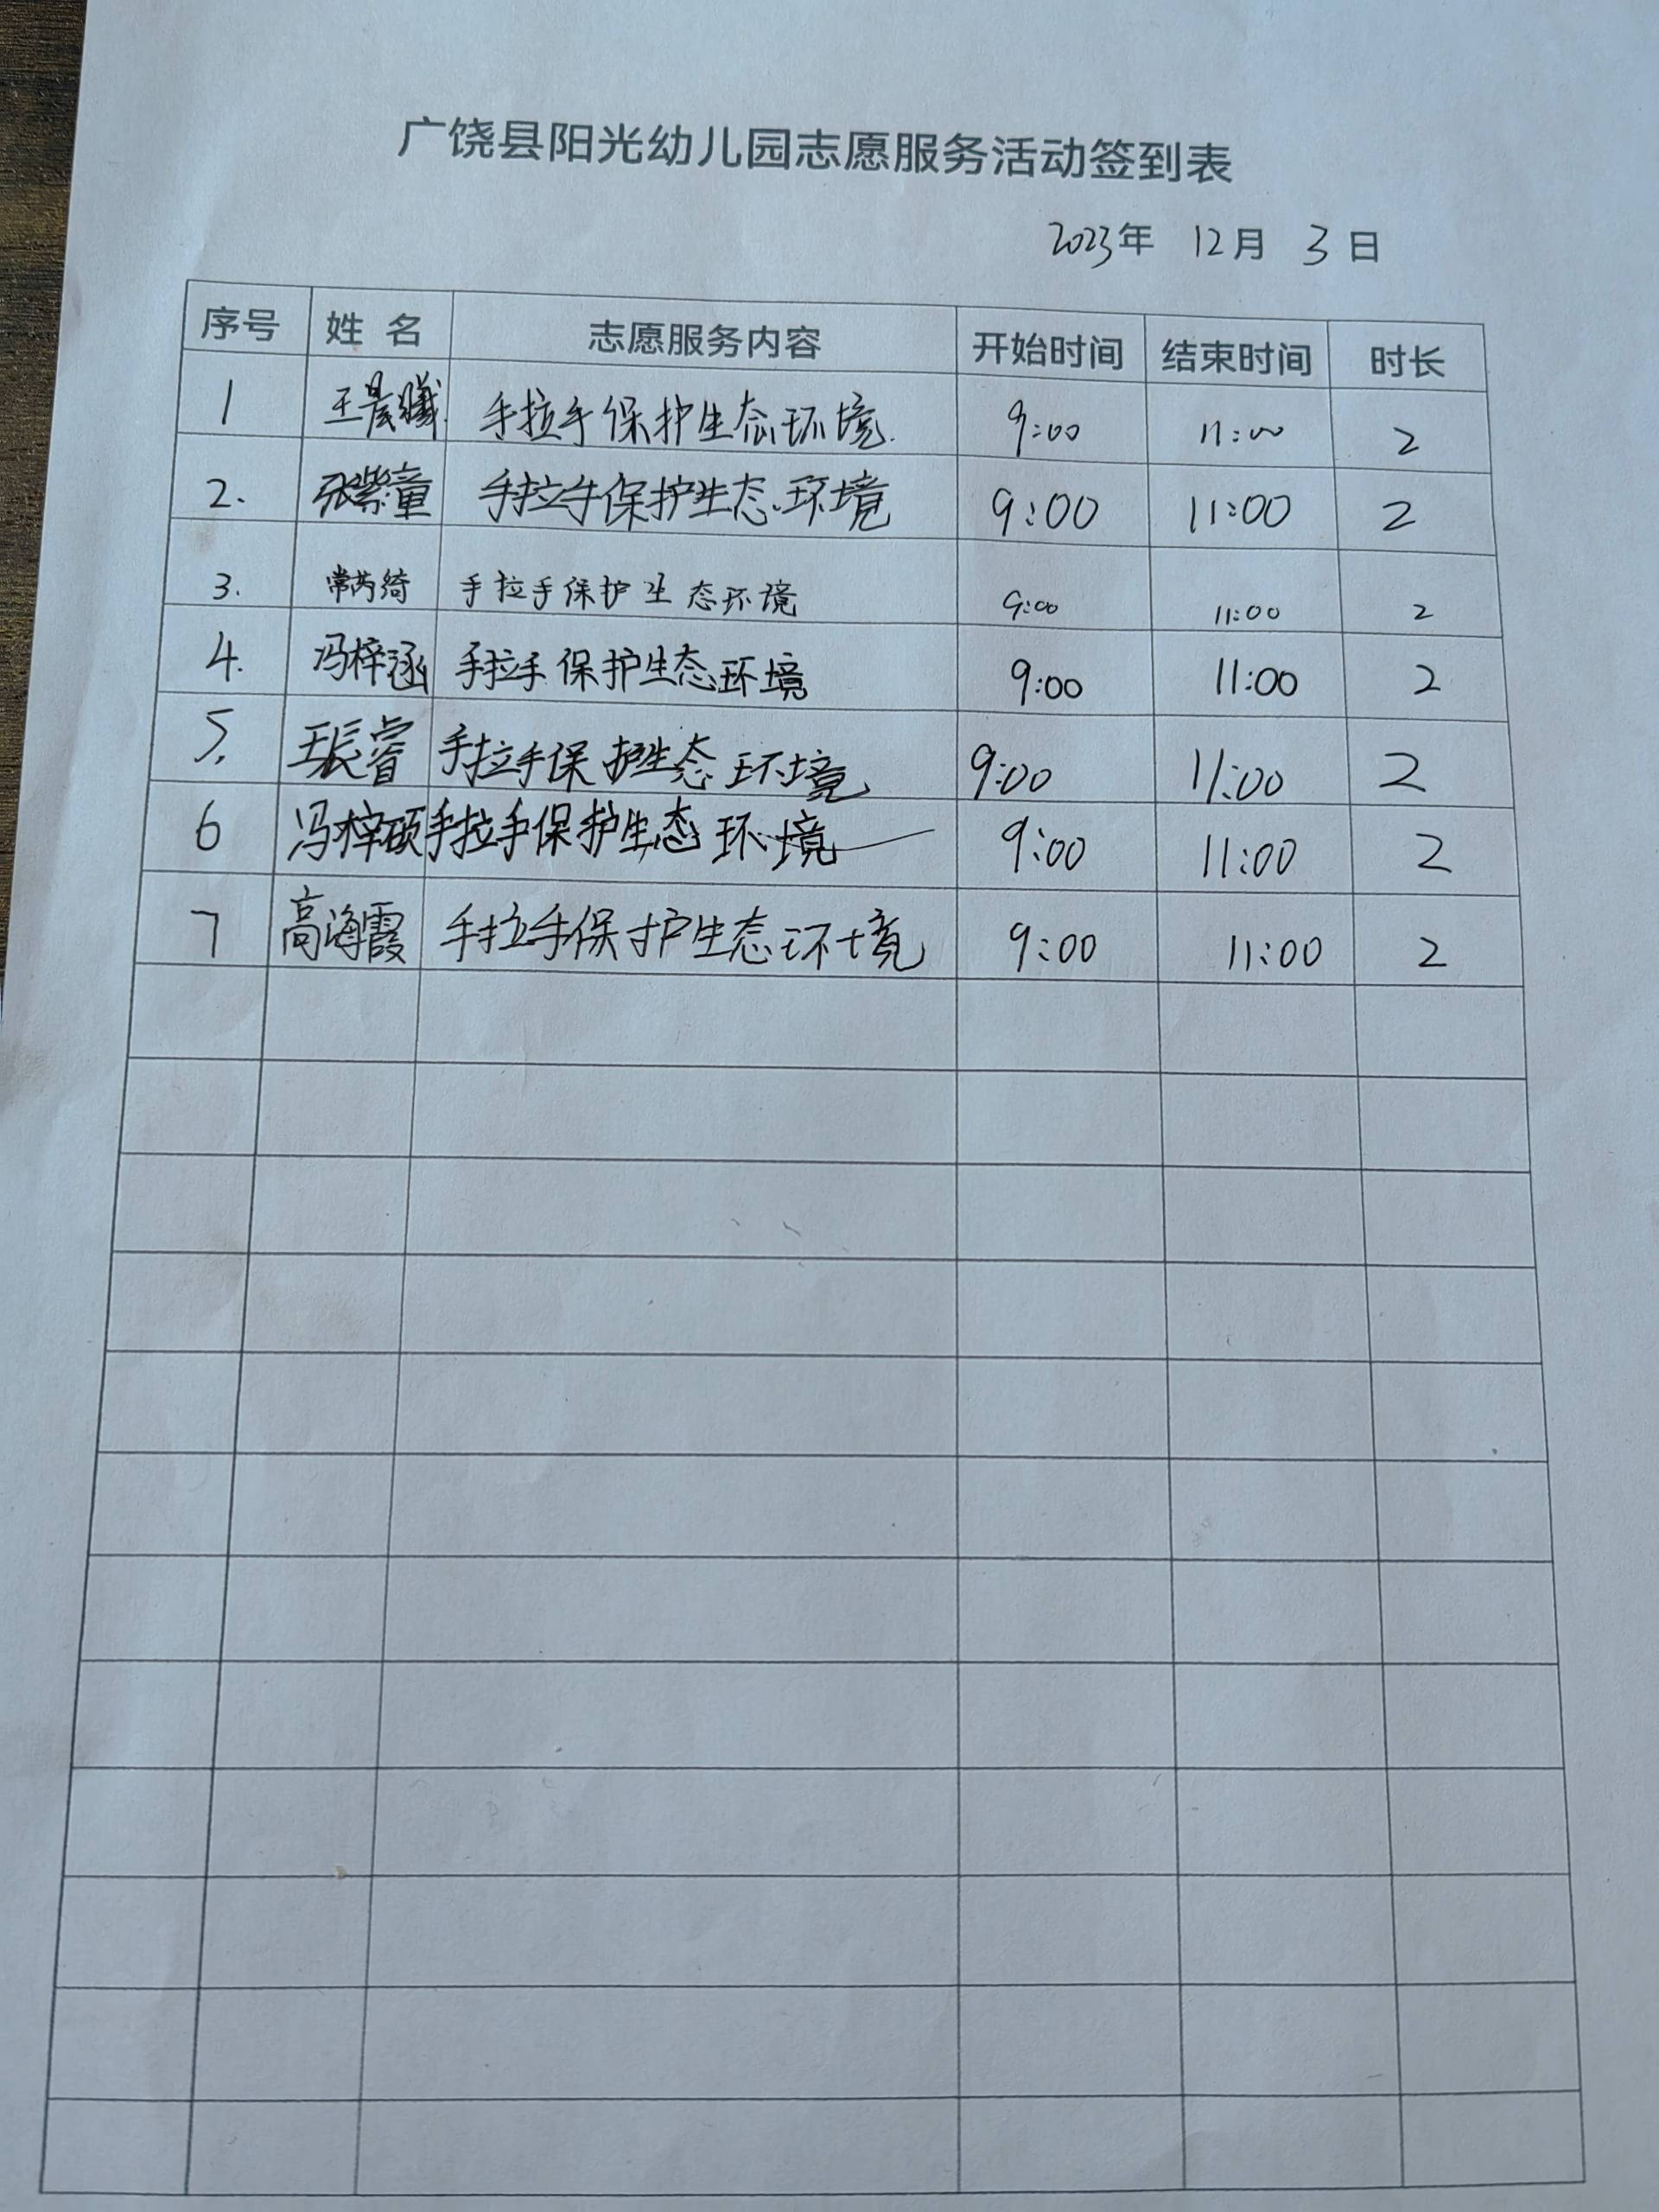 广饶县阳光幼儿园志愿服务活动签到表
2023年 12月 3日
序号 姓名 志愿服务内容 开始时间 结束时间 时长
1 王晨曦 手拉手保护生态环境. 9:00 11:00 2
2. 张紫童 手拉手保护生态环境 9:00 11:00 2
3. 常芮绮 手拉手保护生态环境 9:00 11:00 2
4. 冯梓涵 手拉手保护生态环境 9:00 11:00 2
5. 王辰睿 手拉手保护生态环境 9:00 11:00 2
6 冯梓硕 手拉手保护生态环境 9:00 11:00 2
7 高海霞 手拉手保护生态环境 9:00 11:00 2